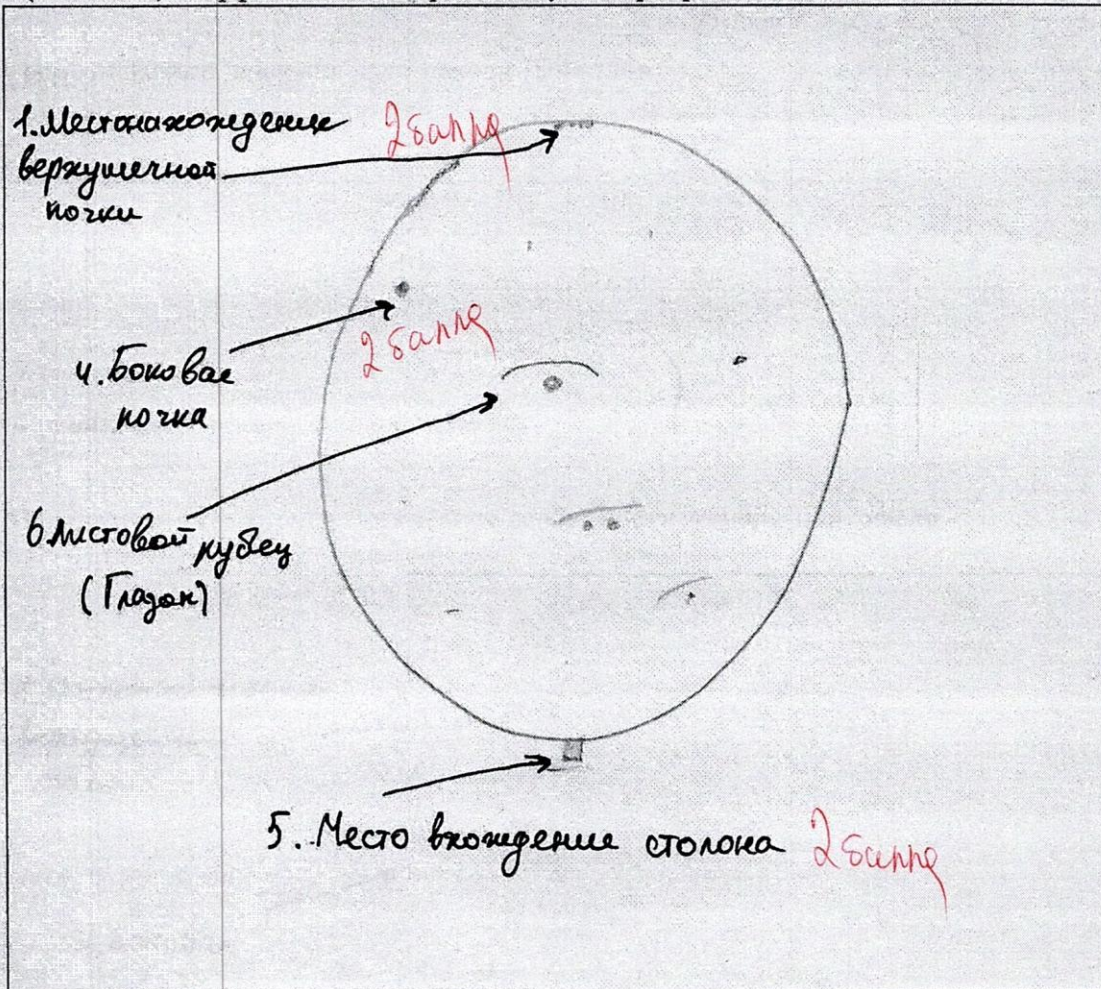 1. Местонахождение
верхушечной
почки
2 балла
4. Боковая
почка
2 балла
6. Листовой рубец
(Глазок)
5. Место вхождение столона
2 балла